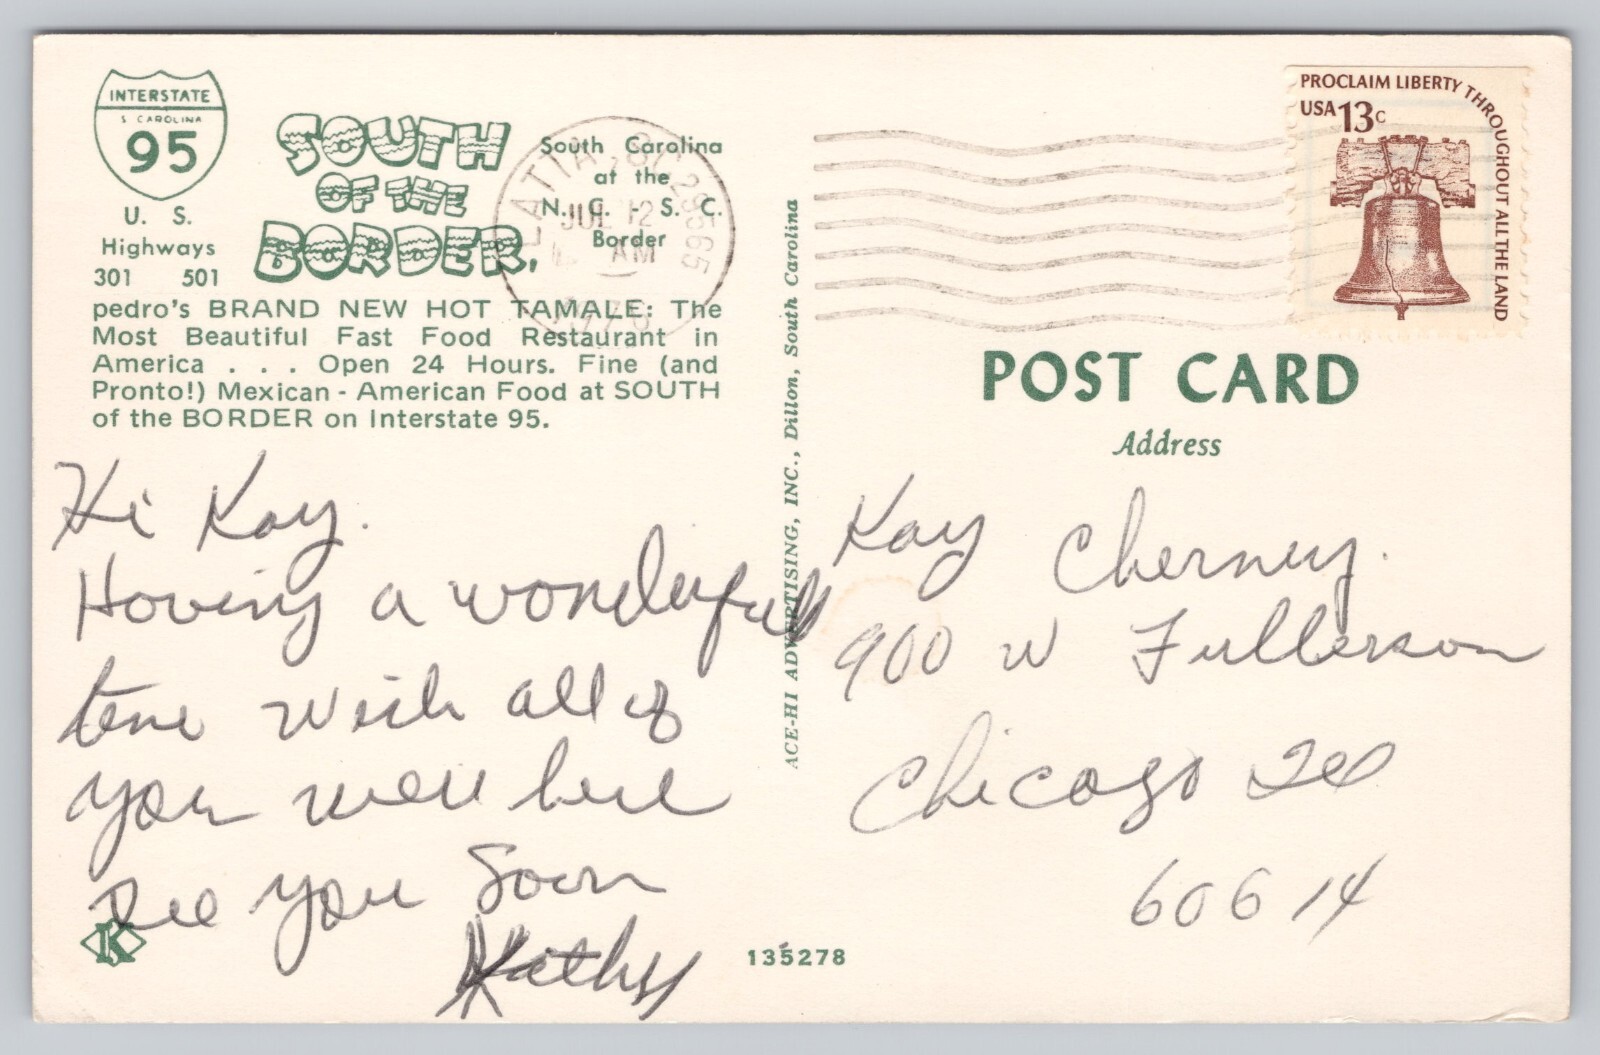 INTERSTATE
S CAROLINA
95
U. S.
Highways
301 501
SOUTH
OF THE
BORDER,
South Carolina
at the
N. C. - S. C.
Border
pedro's BRAND NEW HOT TAMALE: The
Most Beautiful Fast Food Restaurant in
America . . . Open 24 Hours. Fine (and
Pronto!) Mexican - American Food at SOUTH
of the BORDER on Interstate 95.
Hi Kay.
Having a wonderfull
time wish all of
you were here
See you Soon
Kathy
K
ACE-HI ADVERTISING, INC., Dillon, South Carolina
135278
LATTA, SC 29565
JUL 12
AM
PROCLAIM LIBERTY THROUGHOUT ALL THE LAND
USA 13c
POST CARD
Address
Kay Cherney.
900 W Fullerson
Chicago Ill
60614